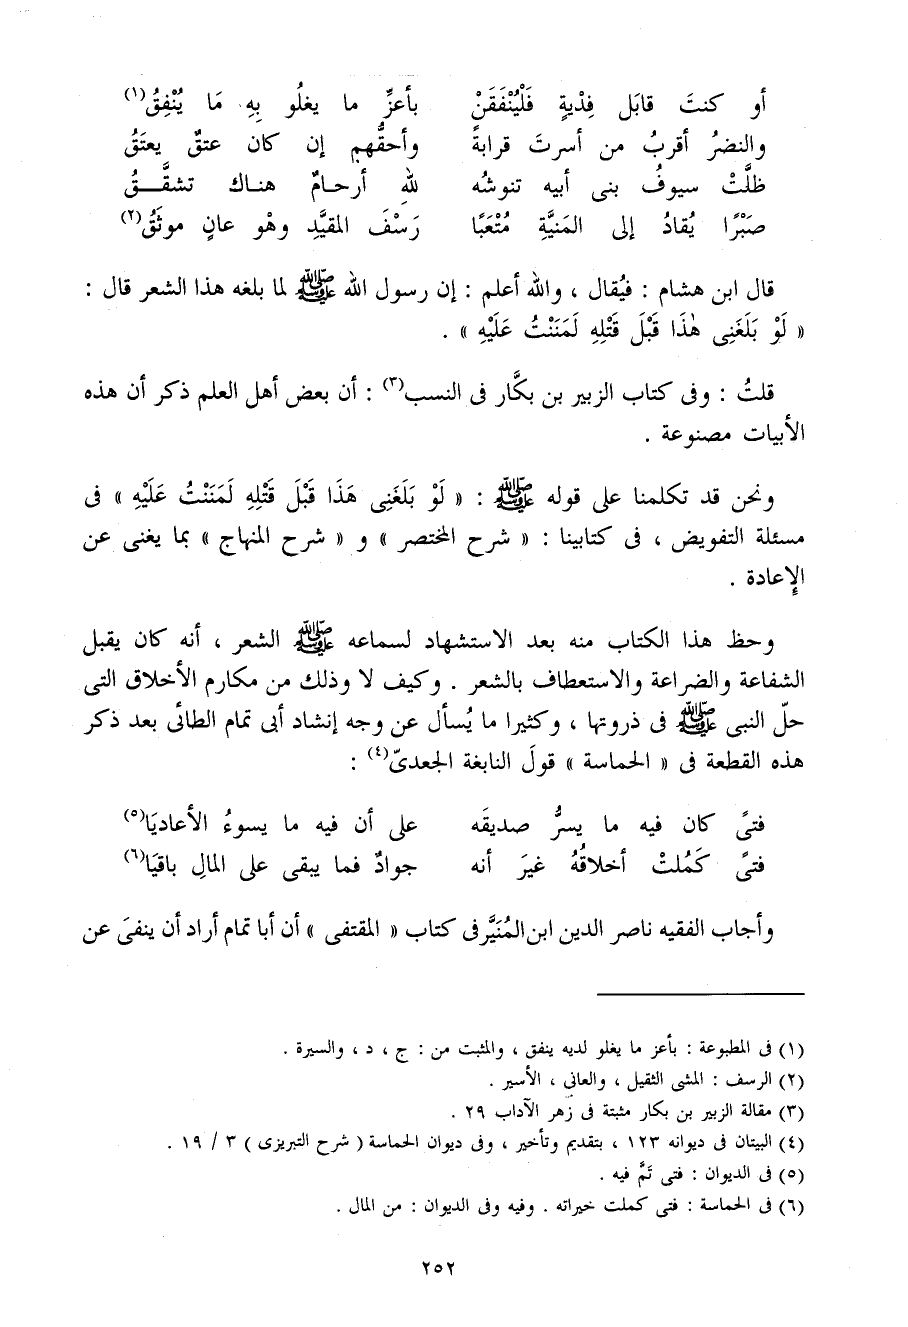 أو كنتَ قابَل فِدْيةٍ فَلْيُنْفَقَنْ بأعزِّ ما يغلُو بِهِ مَا يُنْفِقُ(١)
والنضرُ أقربُ من أسرتَ قرابةً وأحقُّهم إن كان عتقٌ يعتَقُ
ظلَّتْ سيوفُ بنى أبيه تنوشُه للهِ أرحـامٌ هنـاك تشقَّـــقُ
صَبْرًا يُقادُ إلى المَنيَّةِ مُتْعَبًا رَسْفَ المقيَّدِ وهْو عانٍ موثَقُ(٢)
قال ابن هشام : فيُقال ، والله أعلم : إن رسول الله ﷺ لما بلغه هذا الشعر قال :
« لَوْ بَلَغَنِى هٰذَا قَبْلَ قَتْلِهِ لَمَنَنْتُ عَلَيْهِ » .
قلتُ : وفى كتاب الزبير بن بكَّار فى النسب(٣) : أن بعض أهل العلم ذكر أن هذه
الأبيات مصنوعة .
ونحن قد تكلمنا على قوله ﷺ : « لَوْ بَلَغَنِى هَذَا قَبْلَ قَتْلِهِ لَمَنَنْتُ عَلَيْهِ » فى
مسئلة التفويض ، فى كتابينا : « شرح المختصر » و « شرح المنهاج » بما يغنى عن
الإعادة .
وحظ هذا الكتاب منه بعد الاستشهاد لسماعه ﷺ الشعر ، أنه كان يقبل
الشفاعة والضراعة والاستعطاف بالشعر . وكيف لا وذلك من مكارم الأخلاق التى
حلّ النبى ﷺ فى ذروتها ، وكثيرا ما يُسأل عن وجه إنشاد أبى تمام الطائى بعد ذكر
هذه القطعة فى « الحماسة » قولَ النابغة الجعدىّ(٤) :
فتىً كان فيه ما يسرُّ صديقَه على أن فيه ما يسوءُ الأعاديَا(٥)
فتىً كَمُلتْ أخلاقُهُ غيرَ أنه جوادٌ فما يبقى على المالِ باقيَا(٦)
وأجاب الفقيه ناصر الدين ابن المُنَيَّر فى كتاب « المقتفى » أن أبا تمام أراد أن ينفىَ عن
(١) فى المطبوعة : بأعز ما يغلو لديه ينفق ، والمثبت من : ج ، د ، والسيرة .
(٢) الرسف : المشى الثقيل ، والعانى ، الأسير .
(٣) مقالة الزبير بن بكار مثبتة فى زهر الآداب ٢٩ .
(٤) البيتان فى ديوانه ١٢٣ ، بتقديم وتأخير ، وفى ديوان الحماسة ( شرح التبريزى ) ٣ / ١٩ .
(٥) فى الديوان : فتى تَمَّ فيه .
(٦) فى الحماسة : فتى كملت خيراته . وفيه وفى الديوان : من المال .
٢٥٢